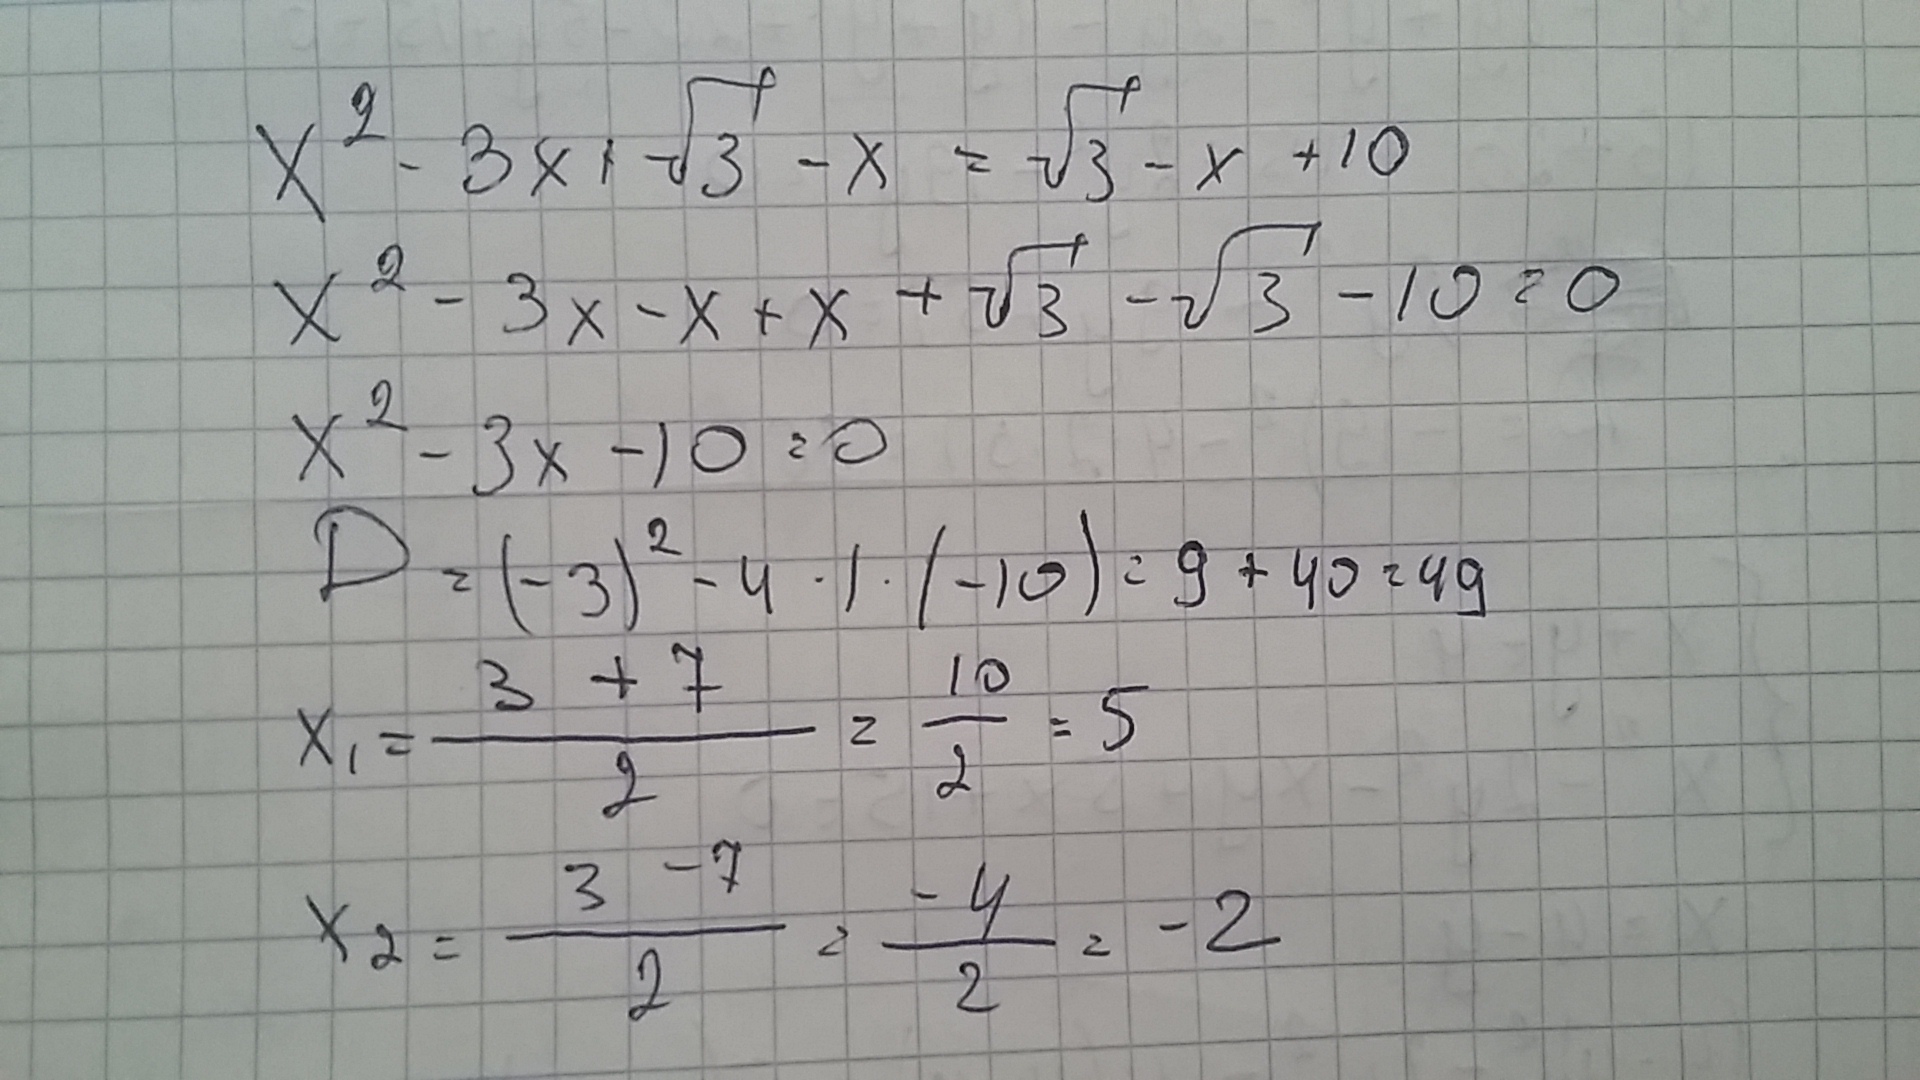 x² - 3x + √3 - x = √3 - x + 10
x² - 3x - x + x + √3 - √3 - 10 = 0
x² - 3x - 10 = 0
D = (-3)² - 4 · 1 · (-10) = 9 + 40 = 49
x₁ = (3 + 7)/2 = 10/2 = 5
x₂ = (3 - 7)/2 = -4/2 = -2